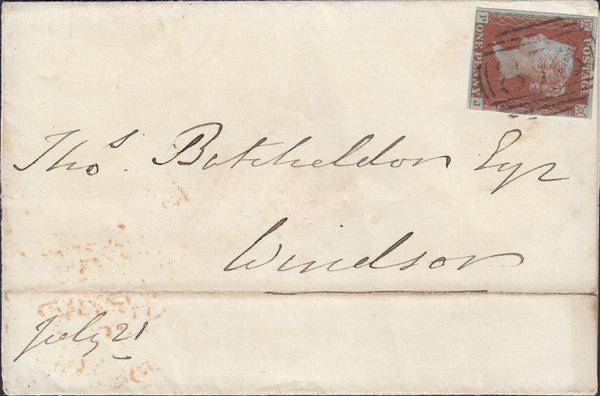 POSTAGE
P J
ONE PENNY
Thos. Batcheldor Esqr
Windsor
July 21